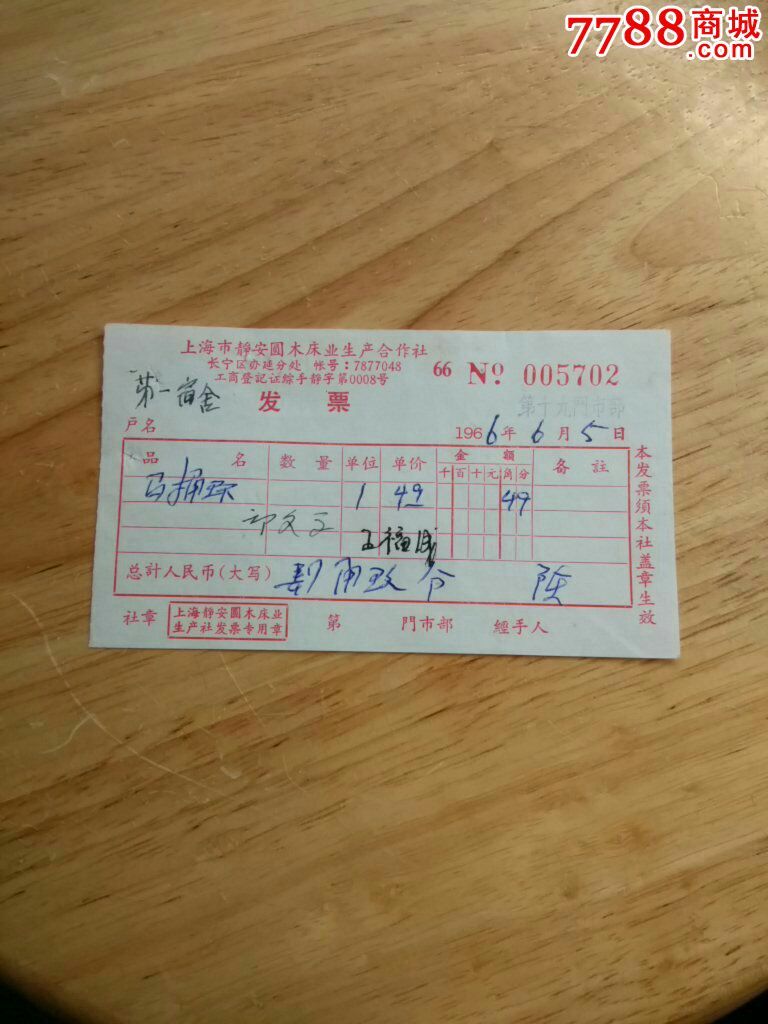 7788商城
.com
上海市靜安圓木床业生产合作社
长宁区办延分处 帐号：7877048
工商登記证綜手靜字第0008号
66 No 005702
第一宿舍
发票
第十九門市部
户名
1966年6月5日
品名 数量 单位 单价 金額 备註
千百十元角分
马桶 1 49 49
总計人民币(大写) 角 分 陈
社章
上海靜安圓木床业
生产社发票专用章
第 門市部 經手人
本发票須本社盖章生效